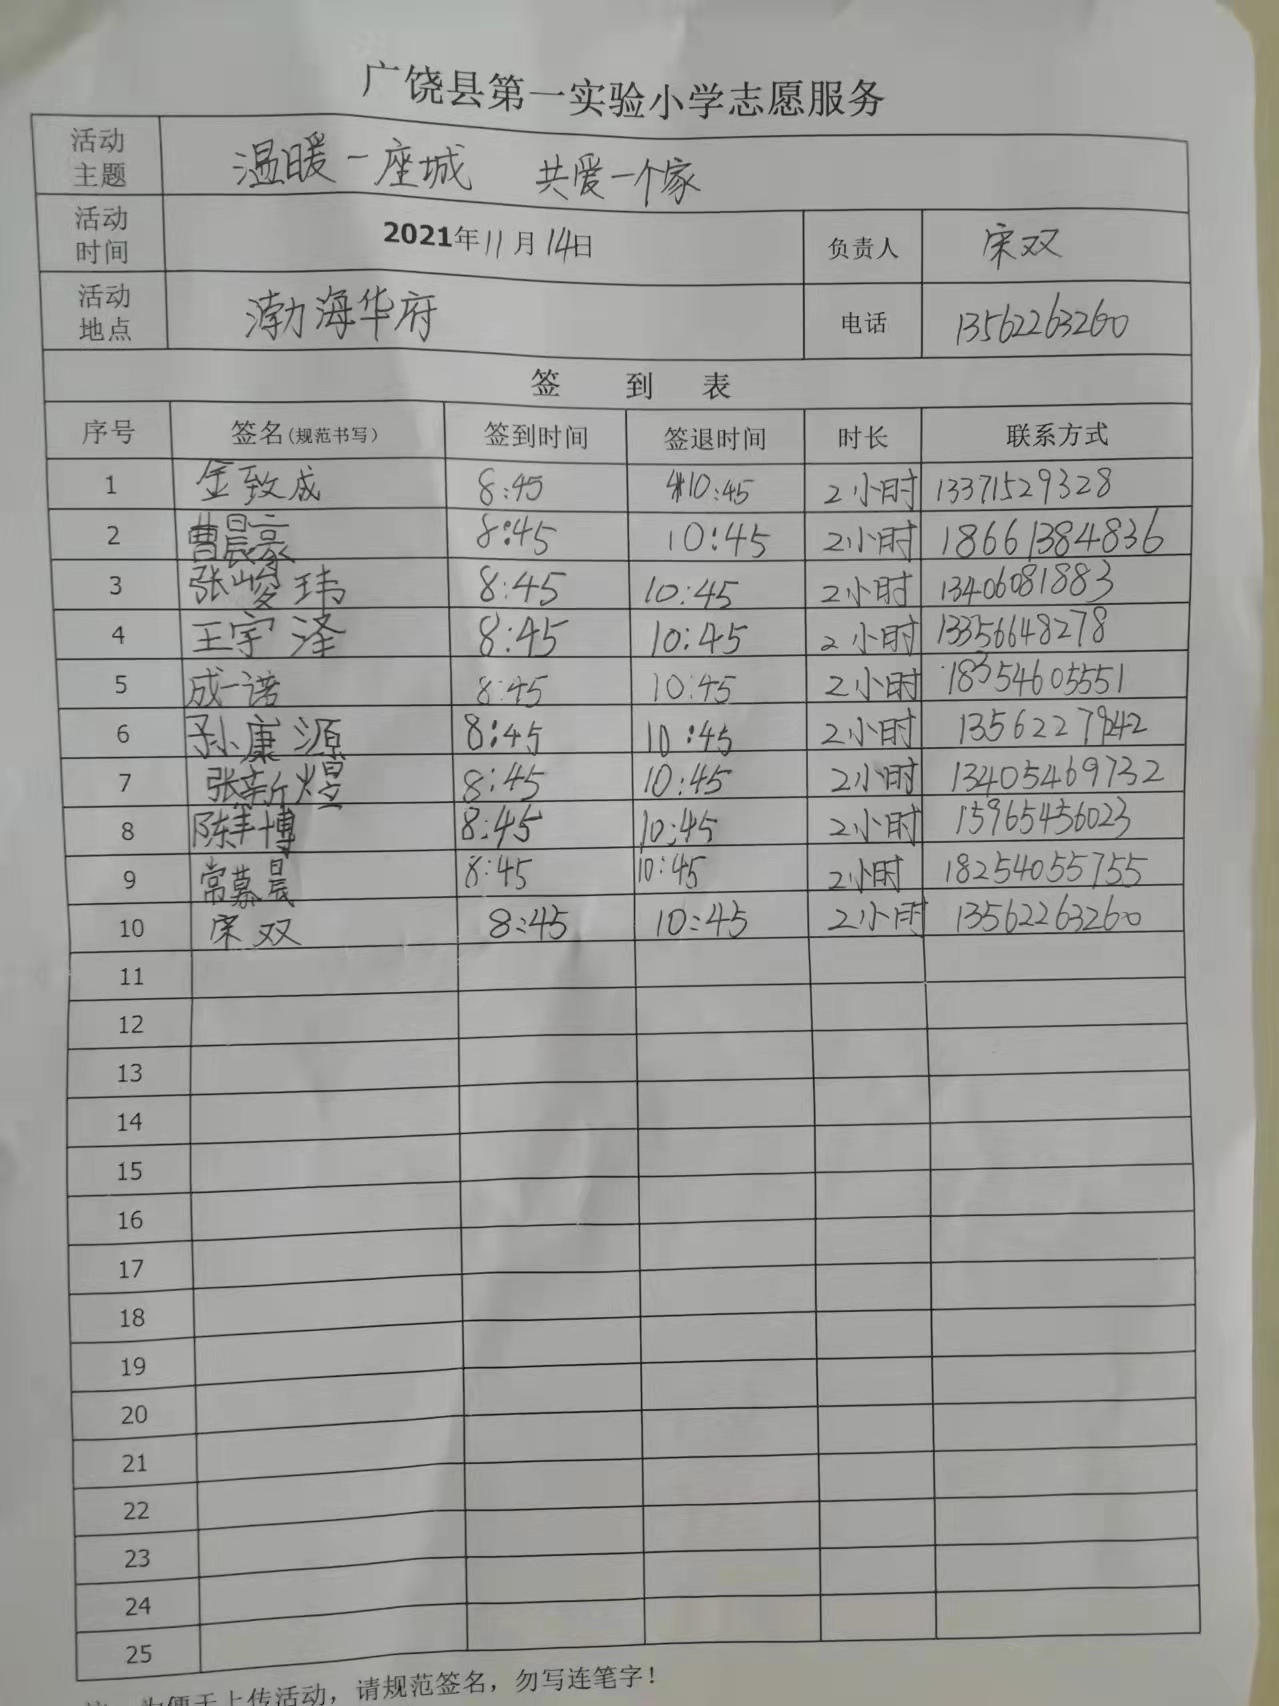 广饶县第一实验小学志愿服务
活动主题 温暖一座城 共爱一个家
活动时间 2021年11月14日 负责人 宋双
活动地点 渤海华府 电话 13562263260
签 到 表
序号 签名(规范书写) 签到时间 签退时间 时长 联系方式
1 金致成 8:45 10:45 2小时 13371529328
2 曹晨豪 8:45 10:45 2小时 18661384836
3 张峻玮 8:45 10:45 2小时 13406081883
4 王宇泽 8:45 10:45 2小时 13356648278
5 成一诺 8:45 10:45 2小时 18354605551
6 孙康源 8:45 10:45 2小时 13562277942
7 张新煜 8:45 10:45 2小时 13405469732
8 陈丰博 8:45 10:45 2小时 15965456023
9 常慕晨 8:45 10:45 2小时 18254055755
10 宋双 8:45 10:45 2小时 13562263260
11
12
13
14
15
16
17
18
19
20
21
22
23
24
25
为便于上传活动，请规范签名，勿写连笔字！